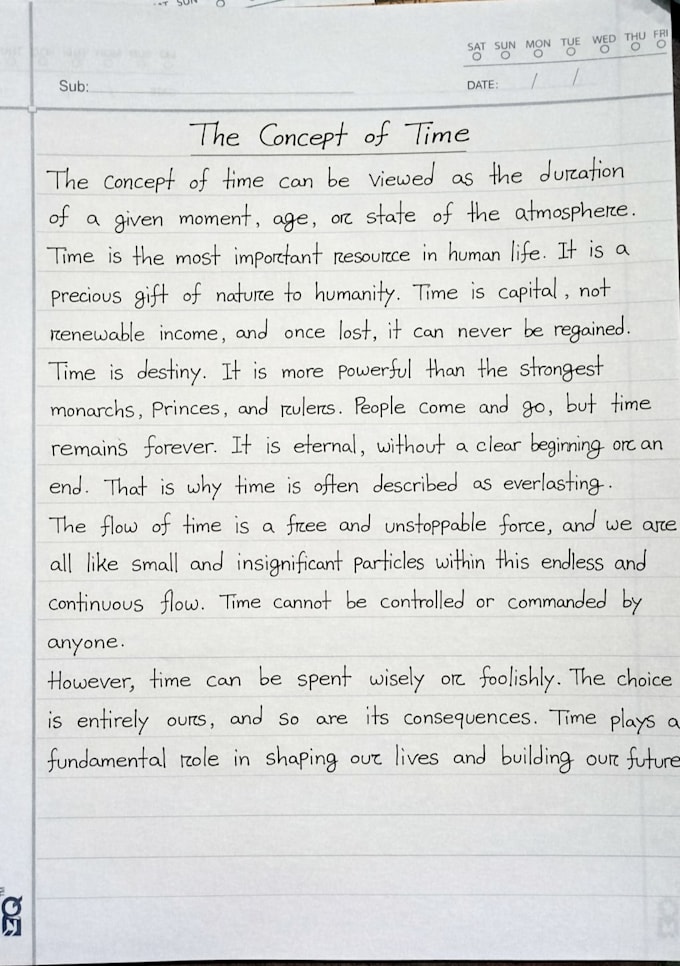 SAT SUN MON TUE WED THU FRI
Sub:
DATE: / /
The Concept of Time
The concept of time can be viewed as the duration
of a given moment, age, or state of the atmosphere.
Time is the most important resource in human life. It is a
precious gift of nature to humanity. Time is capital, not
renewable income, and once lost, it can never be regained.
Time is destiny. It is more powerful than the strongest
monarchs, princes, and rulers. People come and go, but time
remains forever. It is eternal, without a clear beginning or an
end. That is why time is often described as everlasting.
The flow of time is a free and unstoppable force, and we are
all like small and insignificant particles within this endless and
continuous flow. Time cannot be controlled or commanded by
anyone.
However, time can be spent wisely or foolishly. The choice
is entirely ours, and so are its consequences. Time plays a
fundamental role in shaping our lives and building our future